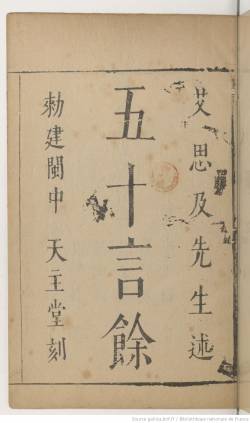 艾思及先生述
五十言餘
勑建閩中 天主堂刻
Source gallica.bnf.fr / Bibliothèque nationale de France